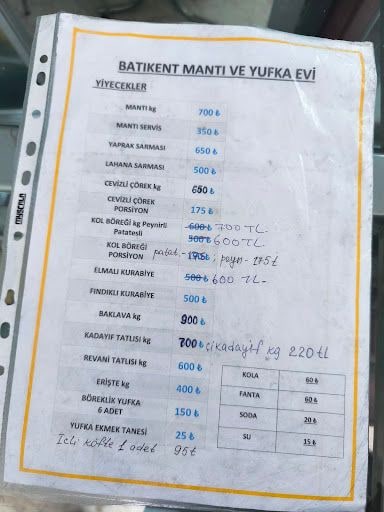 BATIKENT MANTI VE YUFKA EVİ
YİYECEKLER
MANTI kg 700 ₺
MANTI SERVİS 350 ₺
YAPRAK SARMASI 650 ₺
LAHANA SARMASI 500 ₺
CEVİZLİ ÇÖREK kg 650 ₺
CEVİZLİ ÇÖREK
PORSİYON 175 ₺
KOL BÖREĞİ kg Peynirli 600 ₺ 700 TL.
Patatesli 500 ₺ 600 TL.
KOL BÖREĞİ
PORSİYON patat.- 170 ₺; peyn- 175 ₺
ELMALI KURABİYE 500 ₺ 600 TL.-
FINDIKLI KURABİYE 500 ₺
BAKLAVA kg 900 ₺
KADAYIF TATLISI kg 700 ₺ çikadayıf kg 220 tl
REVANİ TATLISI kg 600 ₺
ERİŞTE kg 400 ₺
BÖREKLİK YUFKA
6 ADET 150 ₺
YUFKA EKMEK TANESİ 25 ₺
İçli köfte 1 adet 95₺
KOLA 60 ₺
FANTA 60 ₺
SODA 20 ₺
SU 15 ₺